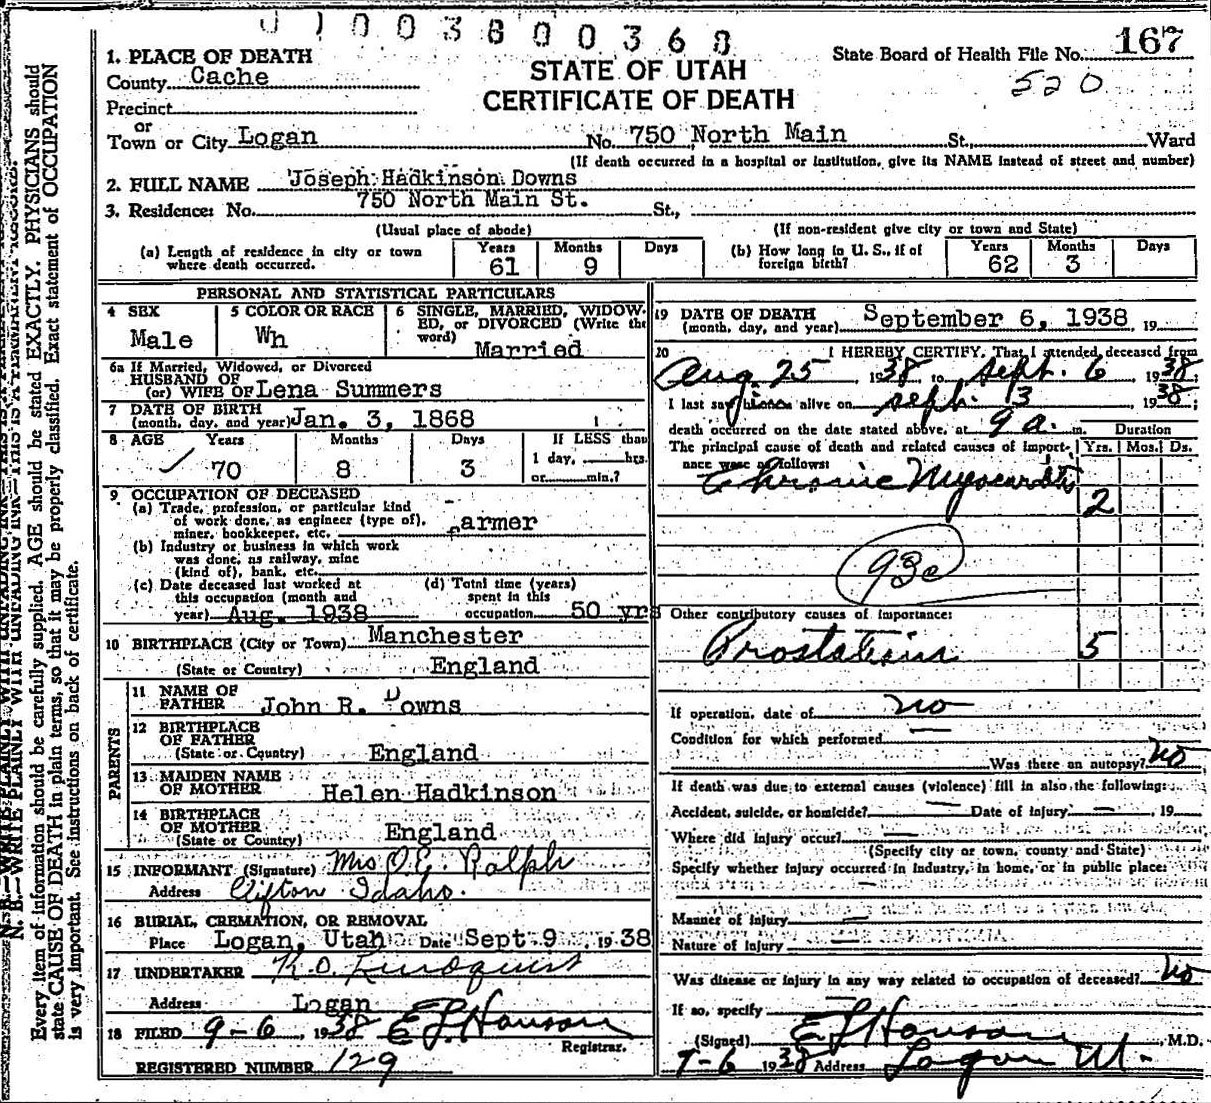 1003800360
STATE OF UTAH
CERTIFICATE OF DEATH
State Board of Health File No. 167
520
1. PLACE OF DEATH
County Cache
Precinct
or
Town or City Logan No. 750 North Main St., Ward
(If death occurred in a hospital or institution, give its NAME instead of street and number)
2. FULL NAME Joseph Hadkinson Downs
3. Residence: No. 750 North Main St. St.,
(Usual place of abode) (If non-resident give city or town and State)
(a) Length of residence in city or town where death occurred. Years 61 Months 9 Days
(b) How long in U. S., if of foreign birth? Years 62 Months 3 Days
PERSONAL AND STATISTICAL PARTICULARS
4 SEX Male
5 COLOR OR RACE Wh
6 SINGLE, MARRIED, WIDOWED, or DIVORCED (Write the word) Married
6a If Married, Widowed, or Divorced
HUSBAND OF
(or) WIFE OF Lena Summers
7 DATE OF BIRTH
(month, day, and year) Jan. 3, 1868
8 AGE Years 70 Months 8 Days 3 If LESS than 1 day, hrs. or min.?
9 OCCUPATION OF DECEASED
(a) Trade, profession, or particular kind
of work done, as engineer (type of),
miner, bookkeeper, etc. farmer
(b) Industry or business in which work
was done, as railway, mine
(kind of), bank, etc.
(c) Date deceased last worked at
this occupation (month and
year) Aug. 1938
(d) Total time (years)
spent in this
occupation 50 yrs
10 BIRTHPLACE (City or Town) Manchester
(State or Country) England
PARENTS
11 NAME OF
FATHER John R. Downs
12 BIRTHPLACE
OF FATHER
(State or Country) England
13 MAIDEN NAME
OF MOTHER Helen Hadkinson
14 BIRTHPLACE
OF MOTHER
(State or Country) England
15 INFORMANT (Signature) Mrs O.E. Ralph
Address Clifton Idaho.
16 BURIAL, CREMATION, OR REMOVAL
Place Logan, Utah Date Sept 9 1938
17 UNDERTAKER K.O. Lundquist
Address Logan
18 FILED 9-6, 1938 E L Hanson
Registrar.
REGISTERED NUMBER 129
19 DATE OF DEATH
(month, day, and year) September 6, 1938, 19
20 I HEREBY CERTIFY, That I attended deceased from
Aug. 25, 1938, to Sept. 6, 1938;
I last saw him alive on Sept. 3, 1938;
death occurred on the date stated above, at 9 a. m. Duration
The principal cause of death and related causes of importance were as follows: Yrs. Mos. Ds.
Chronic Myocarditis 2
93c
Other contributory causes of importance:
5
If operation, date of no
Condition for which performed
Was there an autopsy? no
If death was due to external causes (violence) fill in also the following:
Accident, suicide, or homicide? Date of injury , 19
Where did injury occur?
(Specify city or town, county and State)
Specify whether injury occurred in industry, in home, or in public place:
Manner of injury
Nature of injury
Was disease or injury in any way related to occupation of deceased? no
If so, specify
(Signed) E L Hanson, M.D.
9-6 1938 Address Logan Ut.
N. B.—WRITE PLAINLY WITH UNFADING INK—THIS IS A PERMANENT RECORD.
Every item of information should be carefully supplied. AGE should be stated EXACTLY. PHYSICIANS should
state CAUSE OF DEATH in plain terms, so that it may be properly classified. Exact statement of OCCUPATION
is very important. See instructions on back of certificate.